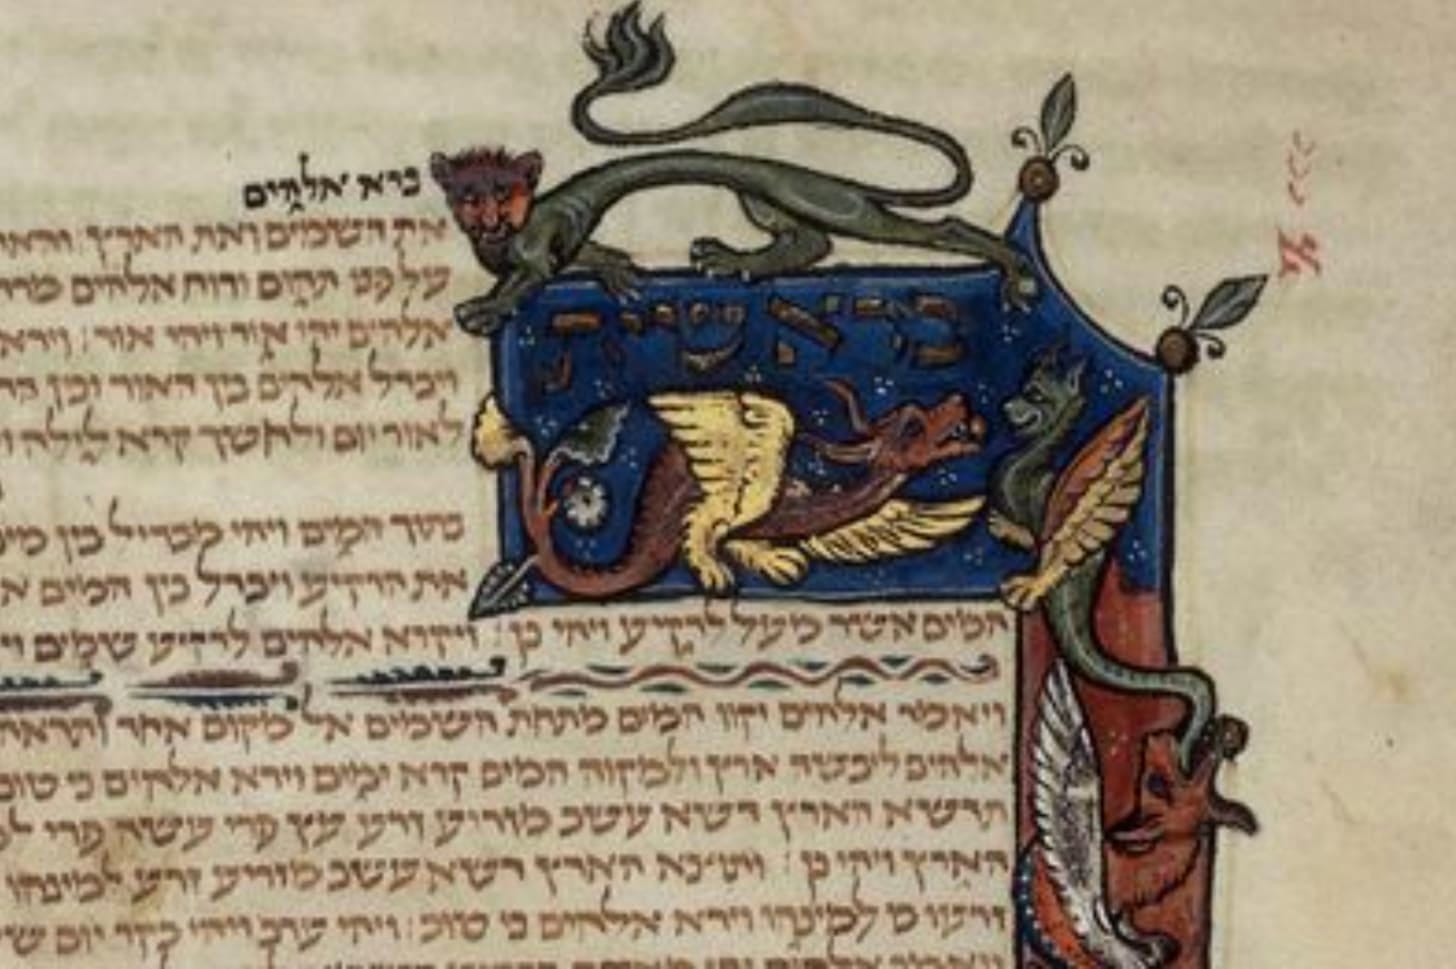 בראשית
ברא אלהים
את השמים ואת הארץ והארץ
על פני תהום ורוח אלהים מרחפת
אלהים יהי אור ויהי אור וירא
ויבדל אלהים בין האור ובין
לאור יום ולחשך קרא לילה
בתוך המים ויהי מבדיל בין מים
את הרקיע ויבדל בין המים
המים אשר מעל לרקיע ויהי כן ויקרא אלהים לרקיע שמים
ויאמר אלהים יקוו המים מתחת השמים אל מקום אחד ותראה
אלהים ליבשה ארץ ולמקוה המים קרא ימים וירא אלהים כי טוב
תדשא הארץ דשא עשב מזריע זרע עץ פרי עשה פרי
הארץ ויהי כן ותוצא הארץ דשא עשב מזריע זרע למינהו
זרעו בו למינהו וירא אלהים כי טוב ויהי ערב ויהי בקר יום